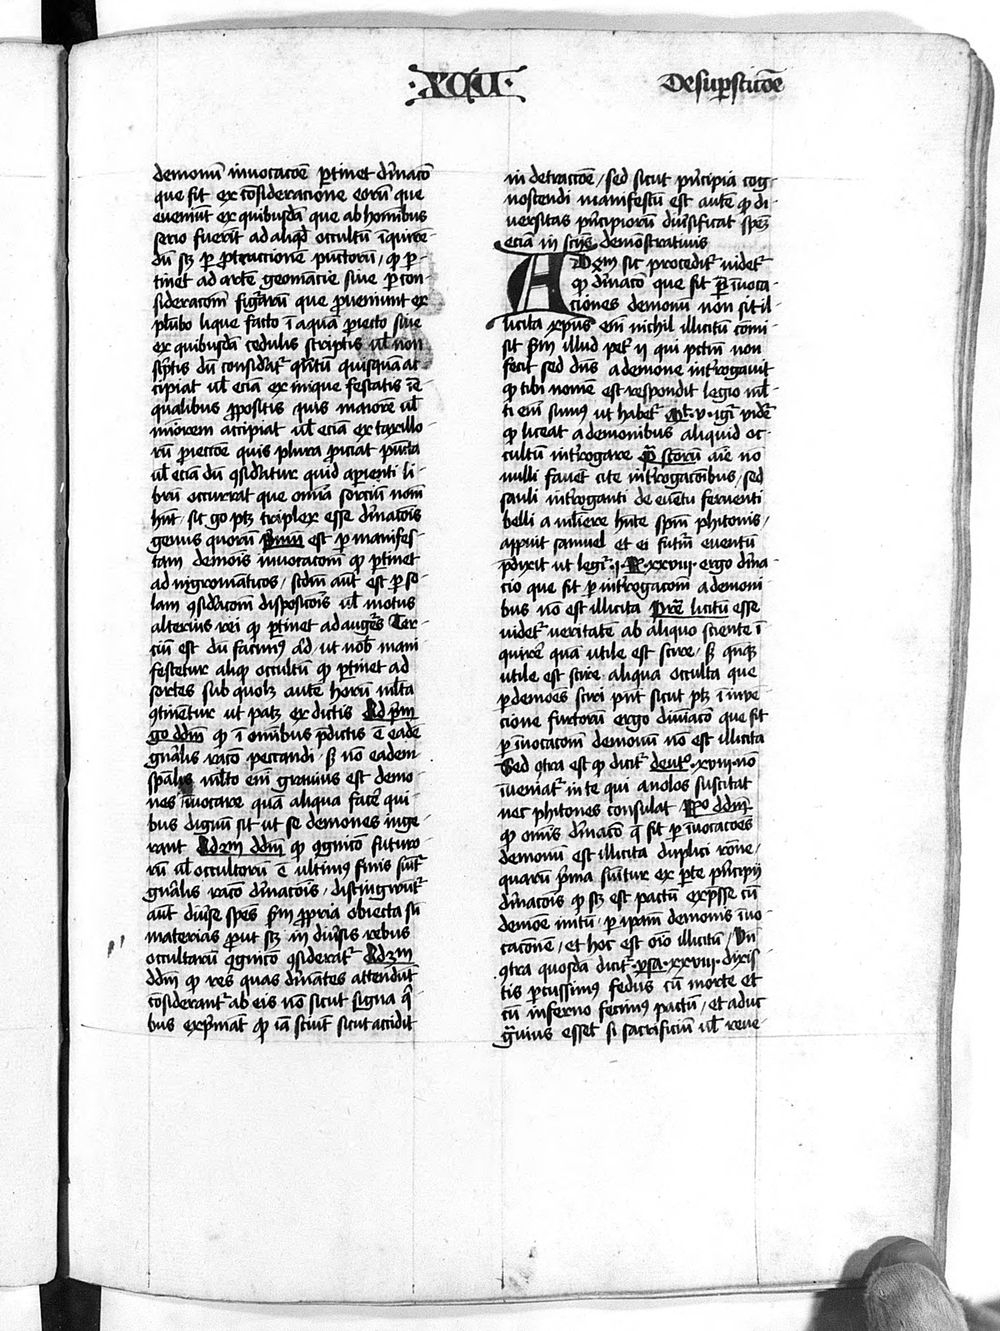 ·XCV·
De supersticiōe
demonum̄ inuocacōē pertinet diuinacō
que fit ex cōsideracione eorū que
eueniūt ex quibusdā que ab hominibus
serio fuerūt ad aliqd occultū īquirē-
dū sꝫ per protraccionē punctorū, qd per-
tinet ad artē geomancie siue per con-
sideracōm figurarū que proueniunt ex
plūbo liquefacto ī aquā proiecto siue
ex quibusdā cedulis scriptis vl non
scriptis dū considātur qn̄tū quisquam ac-
cipiat vl eciā ex inique festatis īe-
qualibus propositis quis maiorē vl
minorem accipiat vl eciā ex taxillo-
rū proieccōe quis plura proiciat puncta
vl eciā dū ꝯsidāatur quid aperienti li-
brū occurrat que omnia sorciū nomē
hn̄t, sic ergo patꝫ triplex esse diuinacōis
genus quorū primū est per manifes-
tam demonis inuocacōm qd pertinet
ad nigromāticos, sedm aūt est per so-
lam ꝯsidacōm disposicōis vl motus
alterius rei qd pertinet ad augures Ter-
ciū est dū facimus aliqd, ut nobis mani
festetur aliqd occultū qd pertinet ad
sortes sub quolꝫ autē horū multa
ꝯtinētur ut patꝫ ex dictis Ad prim
ergo ddm qd ī omnibus predictis ē eadē
gn̄alis racō peccandi sꝫ nō eadem
spālis multo enī grauius est demo-
nes inuocare quā aliqua facere qui-
bus dignū sit ut se demones inge-
rant Ad 2m ddm qd ꝯgnicō futuro
rū vl occultorū ē ultimus finis sūitur
gn̄alis racō diuinacōis, distinguūtur
aūt diuise spēs s̄m propria obiecta siue
materias prout sꝫ in diuersis rebus
occultarū ꝯgnicō ꝯsideratur Ad 3m
ddm qd res quas diuinātes attendūt
cōsiderantur ab eis nō sicut signa qui-
bus exprimāt qd iā sciūt sicut accidit
in detraccōe, sed sicut principia cog-
noscendi manifestū est autē qd di-
uersitas principiorū diuersificat spēm
eciā in scīis demonstratiuis
AD 4m sic proceditur videtur
qd diuinacō que fit per īuoca-
ciones demonū non sit il-
licita xpus enī nichil illicitū comi-
sit s̄m illud petri ij qui pctm non
fecit sed dn̄s a demone interrogauit
qd tibi nomē est respondit legio mul-
ti enī sumus ut habetur Mr· v· igitur videtur
qd liceat a demonibus aliquid oc-
cultū interrogare Pr scorū aīe nō
nulli fauēt icite interrogacōibus, sed
sauli interroganti de euētu feruenti
belli a muliere hn̄te spm phitonis,
apparuit samuel et ei futurū euentū
predixit ut legitur ·i· R· xxviii· ergo diuina
cio que fit per interrogacōm a demoni
bus nō est illicita Pre licitū esse
videtur veritatē ab aliquo sciente ī
quirere quā utile est scire, sꝫ qnqꝫ
utile est scire aliqua occulta que
per demōes sciri pn̄t sicut patꝫ ī inue
cione furtorū ergo diuinacō que fit
per īuocacōm demonū nō est illicita
Sed ꝯtra est qd dicitur deutr· xviii· nō
īueniatur in te qui ariolos suscitat
nec phitones consulat Rō ddm
qd omīs diuinacō q fit per īuocacōes
demonū est illicita duplici rōne,
quarū prima sūitur ex parte principij
diuinacōis qd sꝫ est pactū expresse cū
demōe initū, per ipam demonis īuo-
cacōnē, et hoc est oīo illicitū, Vn̄
ꝯtra quosdā dicitur ·ysa· xxviii· dixis
tis percussimus fedus cū morte et
cū inferno fecimus pactū, et adhuc
grauius esset si sacrificiū vl reue-